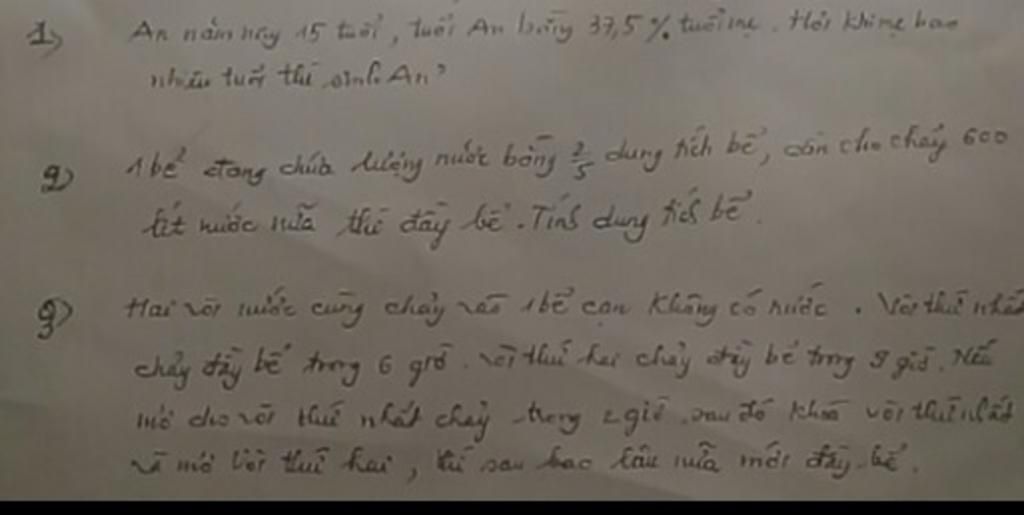 1) An năm nay 15 tuổi, tuổi An bằng 37,5% tuổi mẹ. Hỏi khi mẹ bao
nhiêu tuổi thì sinh An?
2) 1 bể đang chứa lượng nước bằng 2/5 dung tích bể, cần cho chảy 600
lít nước nữa thì đầy bể. Tính dung tích bể.
3) Hai vòi nước cùng chảy vào 1 bể cạn không có nước. Vòi thứ nhất
chảy đầy bể trong 6 giờ. Vòi thứ hai chảy đầy bể trong 9 giờ. Nếu
mở cho vòi thứ nhất chảy trong 2 giờ sau đó khoá vòi thứ nhất
và mở vòi thứ hai, thì sau bao lâu nữa mới đầy bể.